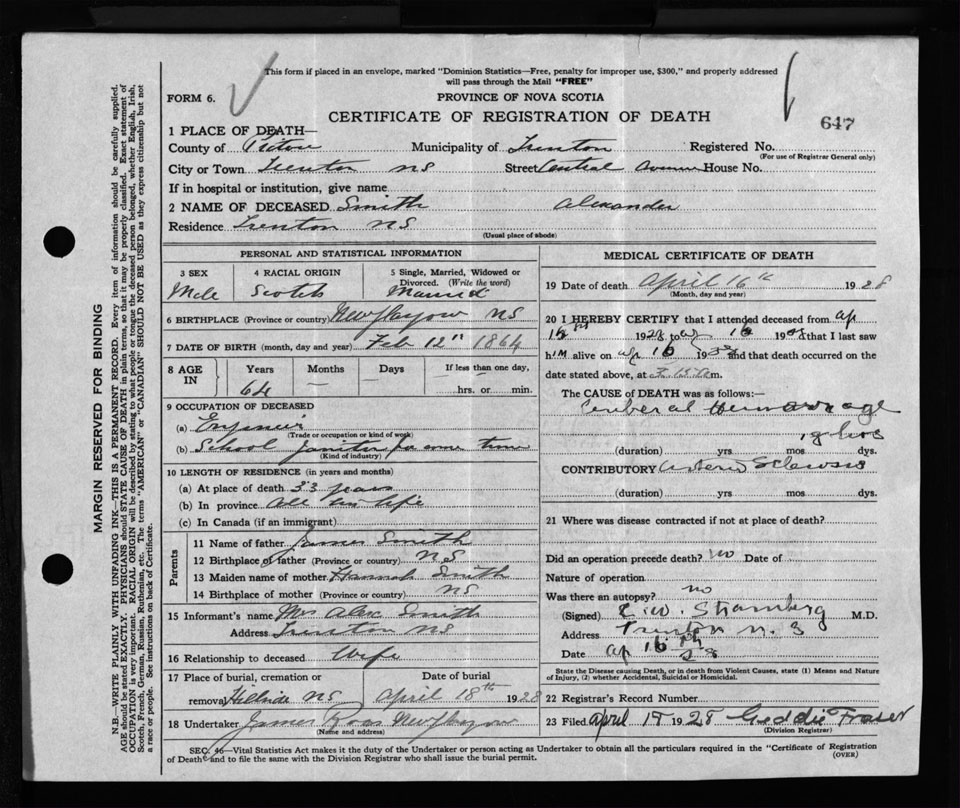 This form if placed in an envelope, marked "Dominion Statistics—Free, penalty for improper use, $300," and properly addressed
will pass through the Mail "FREE"
FORM 6.
PROVINCE OF NOVA SCOTIA
CERTIFICATE OF REGISTRATION OF DEATH
647
1 PLACE OF DEATH—
County of Pictou Municipality of Trenton Registered No.
(For use of Registrar General only)
City or Town Trenton NS Street Central Avenue House No.
If in hospital or institution, give name
2 NAME OF DECEASED Smith Alexander
Residence Trenton NS
(Usual place of abode)
PERSONAL AND STATISTICAL INFORMATION
3 SEX 4 RACIAL ORIGIN 5 Single, Married, Widowed or Divorced. (Write the word)
Male Scotch Married
6 BIRTHPLACE (Province or country) New Glasgow NS
7 DATE OF BIRTH (month, day and year) Feb 12th 1864
8 AGE IN Years Months Days If less than one day,
64 — — hrs. or min.
9 OCCUPATION OF DECEASED
(a) Engineer
(Trade or occupation or kind of work)
(b) School Janitor for some time
(Kind of industry)
10 LENGTH OF RESIDENCE (in years and months)
(a) At place of death 33 years
(b) In province all his life
(c) In Canada (if an immigrant)
Parents
11 Name of father James Smith
12 Birthplace of father (Province or country) NS
13 Maiden name of mother Hannah Smith
14 Birthplace of mother (Province or country) NS
15 Informant's name Mrs Alex Smith
Address Trenton NS
16 Relationship to deceased Wife
17 Place of burial, cremation or Date of burial
removal Hillside NS April 18th 1928
18 Undertaker James Ross New Glasgow
(Name and address)
MEDICAL CERTIFICATE OF DEATH
19 Date of death April 16th 1928
(Month, day and year)
20 I HEREBY CERTIFY that I attended deceased from ap
16 1928 to ap 16 19 that I last saw
him alive on ap 16 19 and that death occurred on the
date stated above, at m.
The CAUSE OF DEATH was as follows:—
Cerebral Hemorrhage
(duration) yrs mos dys.
CONTRIBUTORY Arterio Sclerosis
(duration) yrs mos dys.
21 Where was disease contracted if not at place of death?
Did an operation precede death? no Date of
Nature of operation
Was there an autopsy? no
(Signed) M.D.
Address Trenton N. S
Date ap 16th 28
State the Disease causing Death, or in death from Violent Causes, state (1) Means and Nature
of Injury, (2) whether Accidental, Suicidal or Homicidal.
22 Registrar's Record Number
23 Filed April 17 1928 Geddie Fraser
(Division Registrar)
SEC. 46—Vital Statistics Act makes it the duty of the Undertaker or person acting as Undertaker to obtain all the particulars required in the "Certificate of Registration
of Death" and to file the same with the Division Registrar who shall issue the burial permit.
(OVER)
MARGIN RESERVED FOR BINDING
N.B.—WRITE PLAINLY WITH UNFADING INK—THIS IS A PERMANENT RECORD. Every item of information should be carefully supplied.
AGE should be stated EXACTLY. PHYSICIANS should STATE CAUSE OF DEATH in plain terms, so that it may be properly classified. Exact statement of
OCCUPATION is very important. RACIAL ORIGIN will be described by stating to what people or tongue the deceased person belonged, whether English, Irish,
Scotch, French, German, Russian, Ruthenian, etc. The terms "AMERICAN" or "CANADIAN" SHOULD NOT BE USED as they express citizenship but not
a race or people. See instructions on back of Certificate.